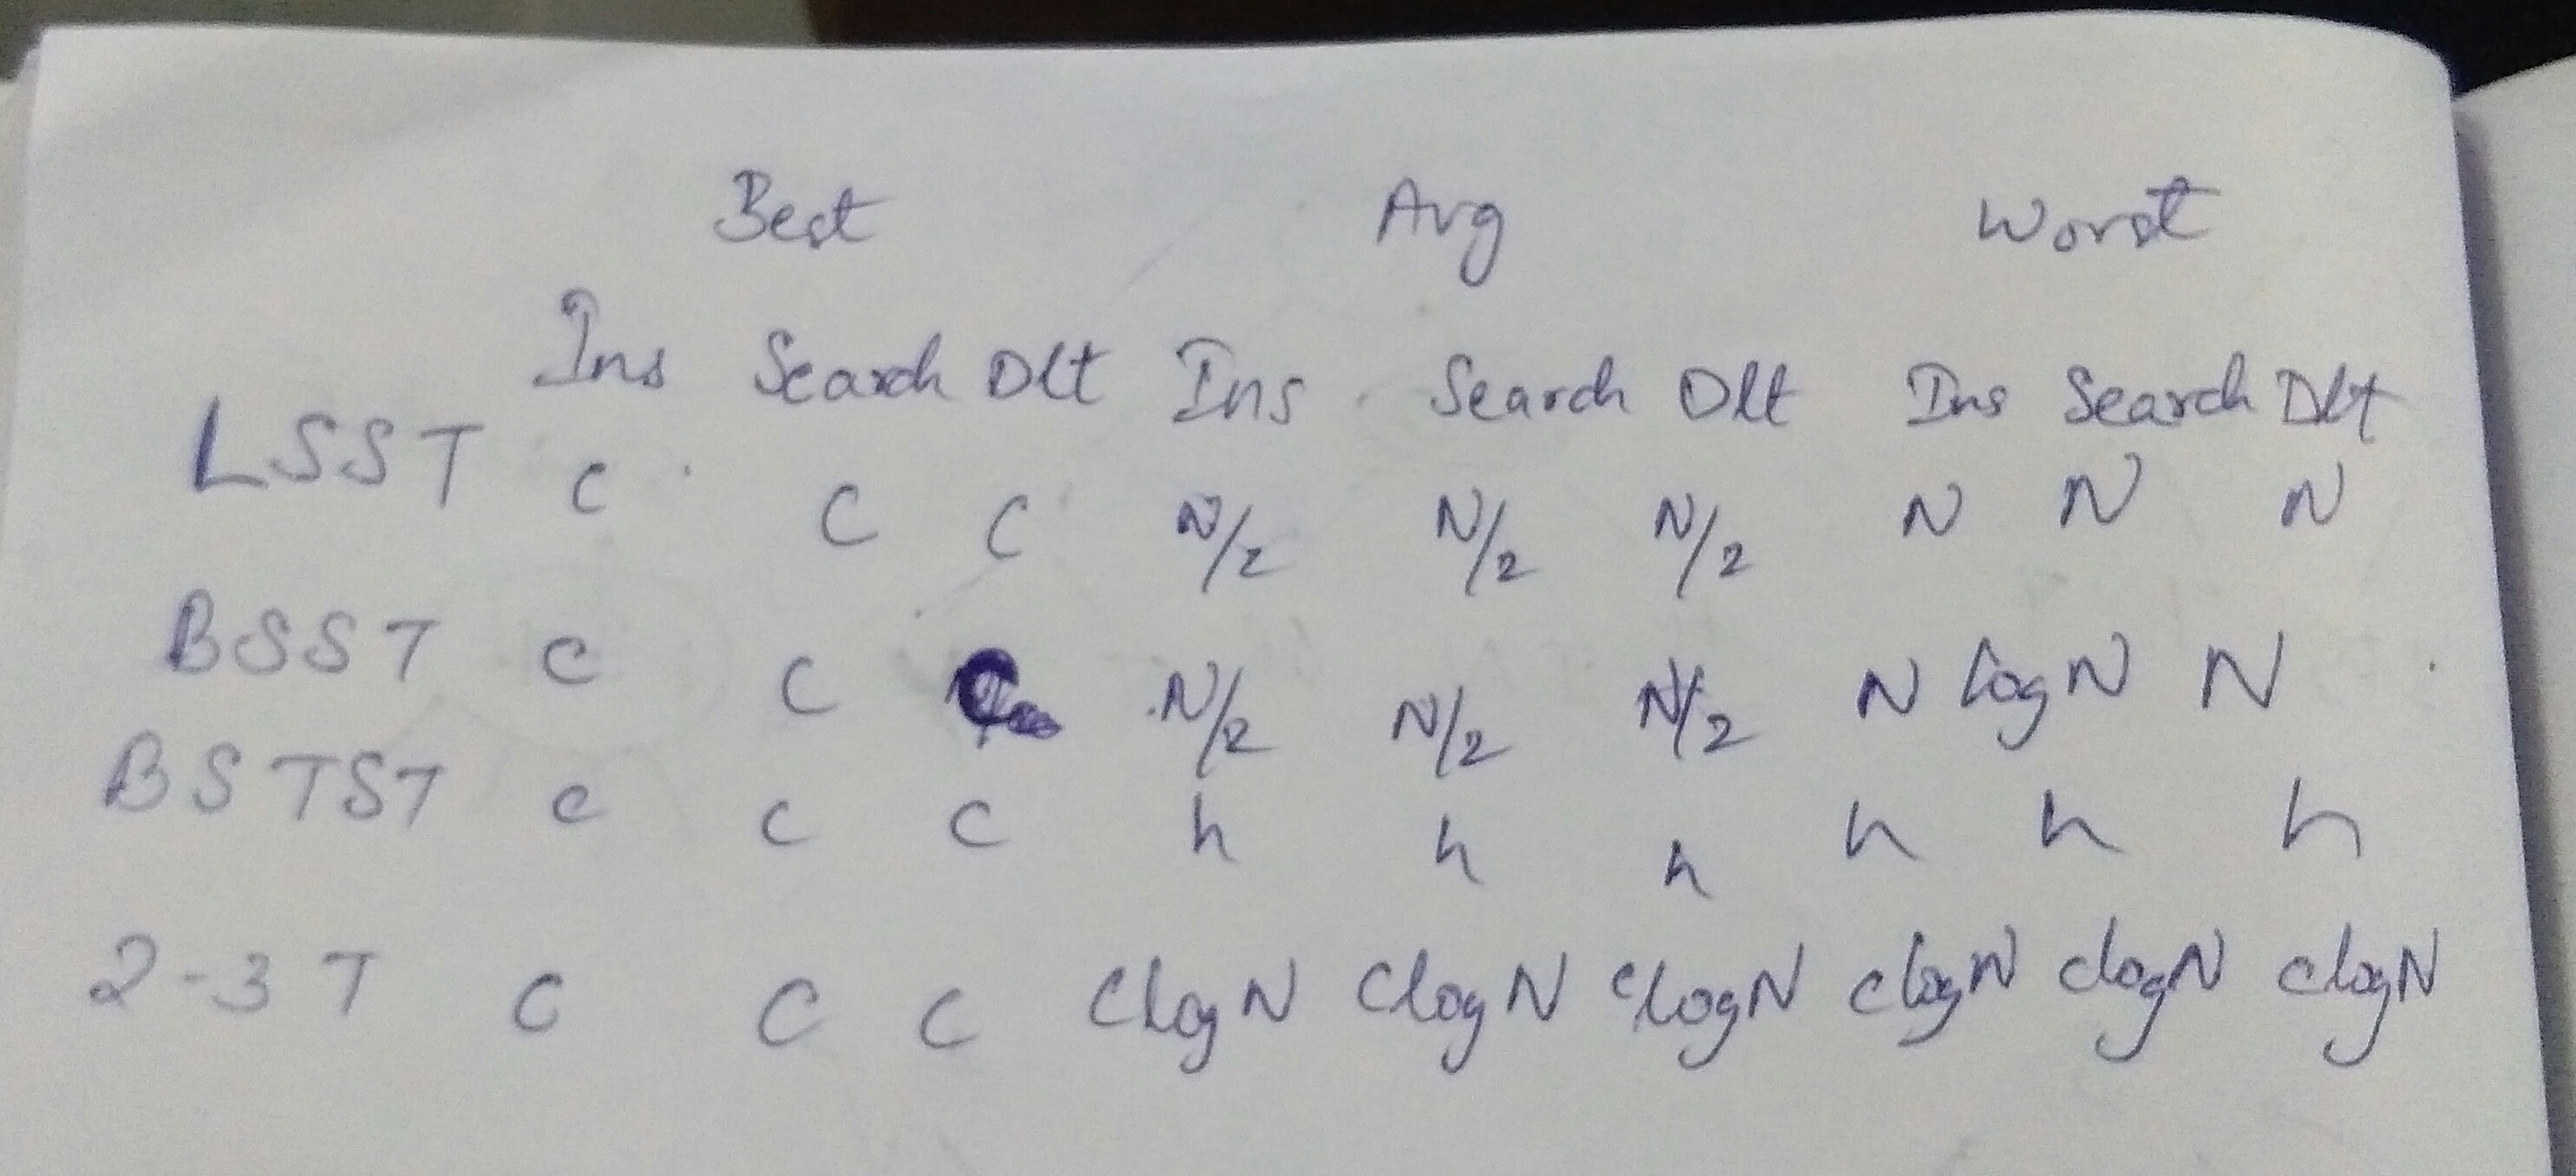 Best Avg Worst
Ins Search Dlt Ins Search Dlt Ins Search Dlt
LSST C C C N/2 N/2 N/2 N N N
BSST C C C N/2 N/2 N/2 N log N N
BSTST C C C h h h h h h
2-3 T C C C C log N C log N C log N C log N C log N C log N